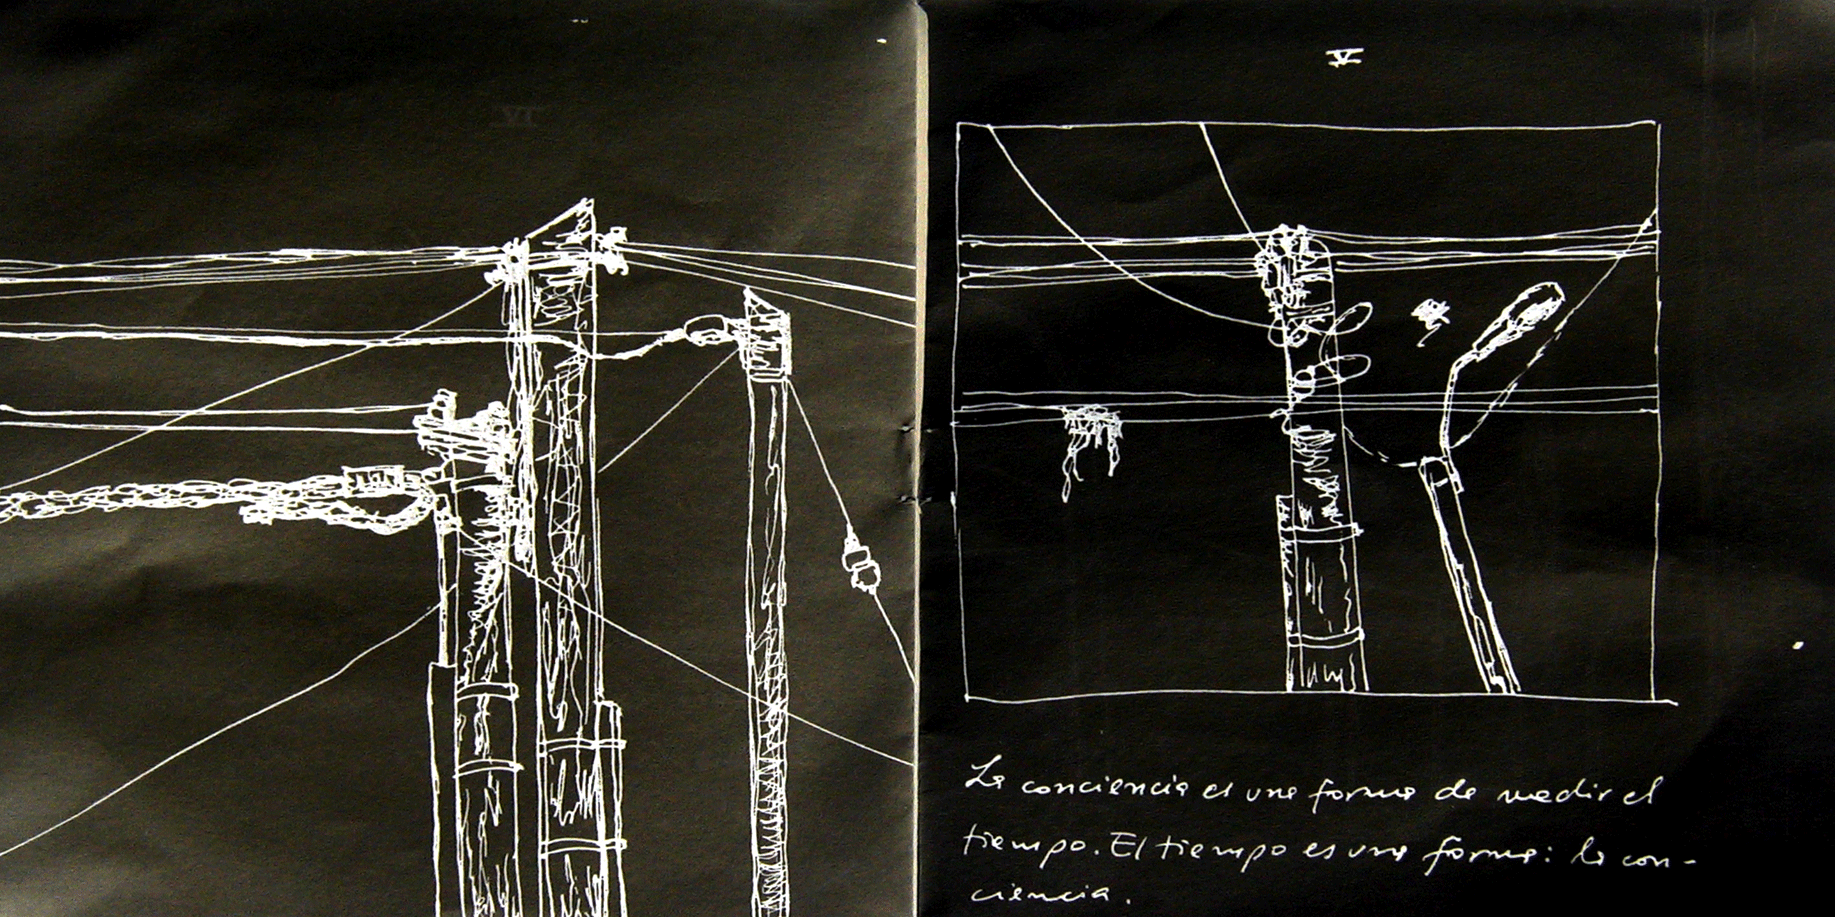 V
La conciencia es una forma de medir el
tiempo. El tiempo es una forma: la con-
ciencia.